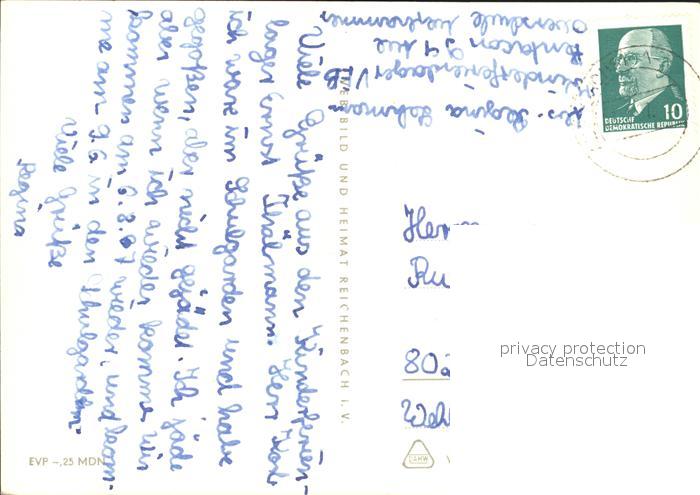 Viele Grüße aus den Kinderferien-
lager Ernst Thälmann. Herr
ich ware im Schulgarden und habe
gegoßen, aber nicht gejädet. Ich jäde
aber wenn ich wieder komme. Wir
kommen am 6.8.67 wieder, und kom-
me am 9.6 in den Schulgarden.
Viele Grüße
Regina
Abs. Regina Lehmann
Kinderferienlager VEB
Pentacon
Oberschule
VEB BILD UND HEIMAT REICHENBACH I. V.
10
DEUTSCHE
DEMOKRATISCHE REPUBLIK
80
privacy protection
Datenschutz
EVP –,25 MDN